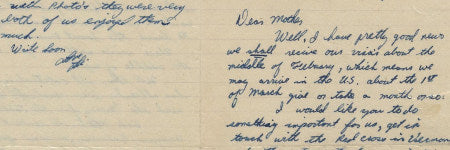 with photos they were very
both of us enjoyed them
much.
Write soon
Dear Mother,
Well, I have pretty good news
we shall receive our visas about the
middle of February, which means we
may arrive in the U.S. about the 1st
of March give or take a month or so.
I would like you to do
something important for us, get in
touch with the Red Cross in